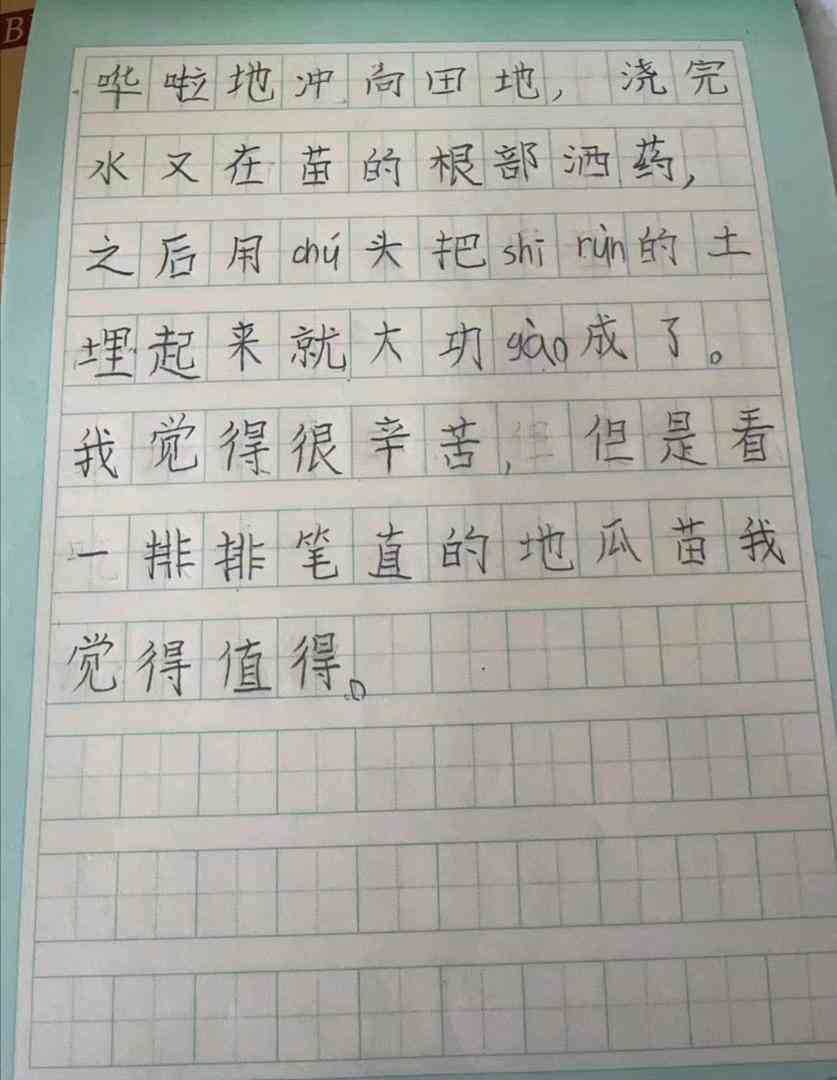 哗啦地冲向田地，浇完
水又在苗的根部洒药，
之后用chú头把shī rùn的土
埋起来就大功gào成了。
我觉得很辛苦，但是看
一排排笔直的地瓜苗我
觉得值得。